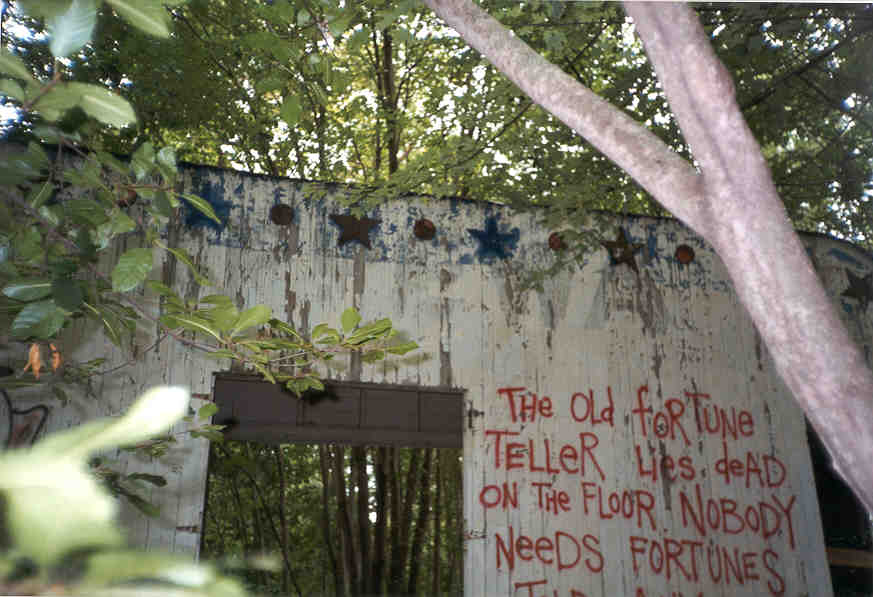 THe OLd foRTUNe
TeLLeR Lies deAD
ON THe FLOOR. NOBODY
NeeDS FORTUNES